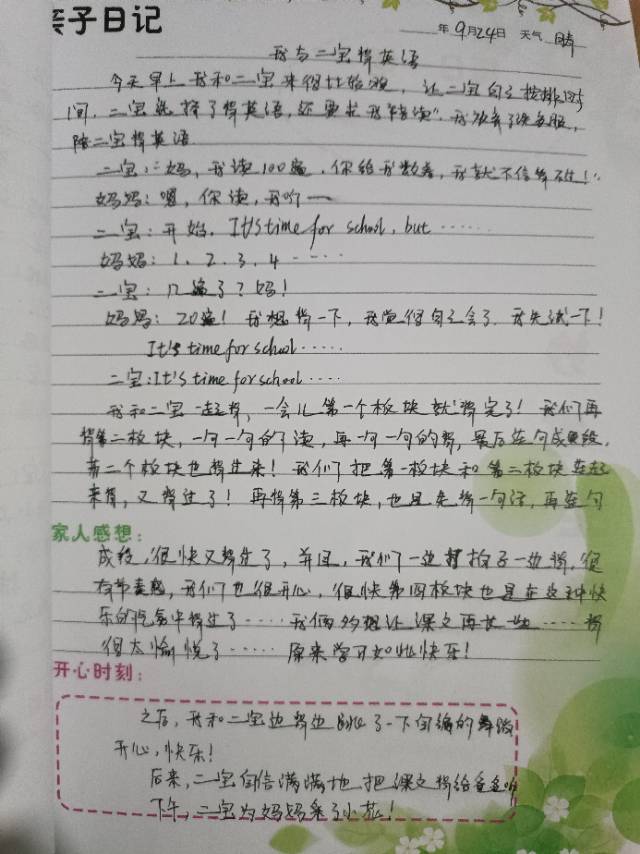 亲子日记
年 9月24日 天气 晴
我与二宝背英语
今天早上我和二宝来得比较晚，让二宝自己安排时
间，二宝选择了背英语，还要求我"陪读"，我放弃了洗衣服，
陪二宝背英语
二宝："妈，我读100遍，你给我数着，我就不信背不过！"
妈妈：嗯，你读，我听——
二宝：开始，It's time for school, but ······
妈妈：1、2、3、4 ·····
二宝：几遍了？妈！
妈妈：20遍！我想背一下，我觉得自己会了，我先试一下！
It's time for school ·····
二宝：It's time for school ····
我和二宝一起背，一会儿第一个板块就背完了！我们再
背第二板块，一句一句的读，再一句一句的背，最后连句成段，
第二个板块也背过来！我们把第一板块和第二板块连起
来背，又背过了！再背第三板块，也是先背一句话，再连句
家人感想：
成段，很快又背过了，并且，我们一边打拍子一边背，很
有节奏感，我们也很开心，很快第四板块也是在这种快
乐的气氛中背过了····我俩多想让课文再长一些····背
得太愉悦了·····原来学习如此快乐！
开心时刻：
之后，我和二宝边背边了一下自编的舞蹈
开心，快乐！
后来，二宝自信满满地把课文背给爸爸听
下午，二宝为妈妈采了小花！